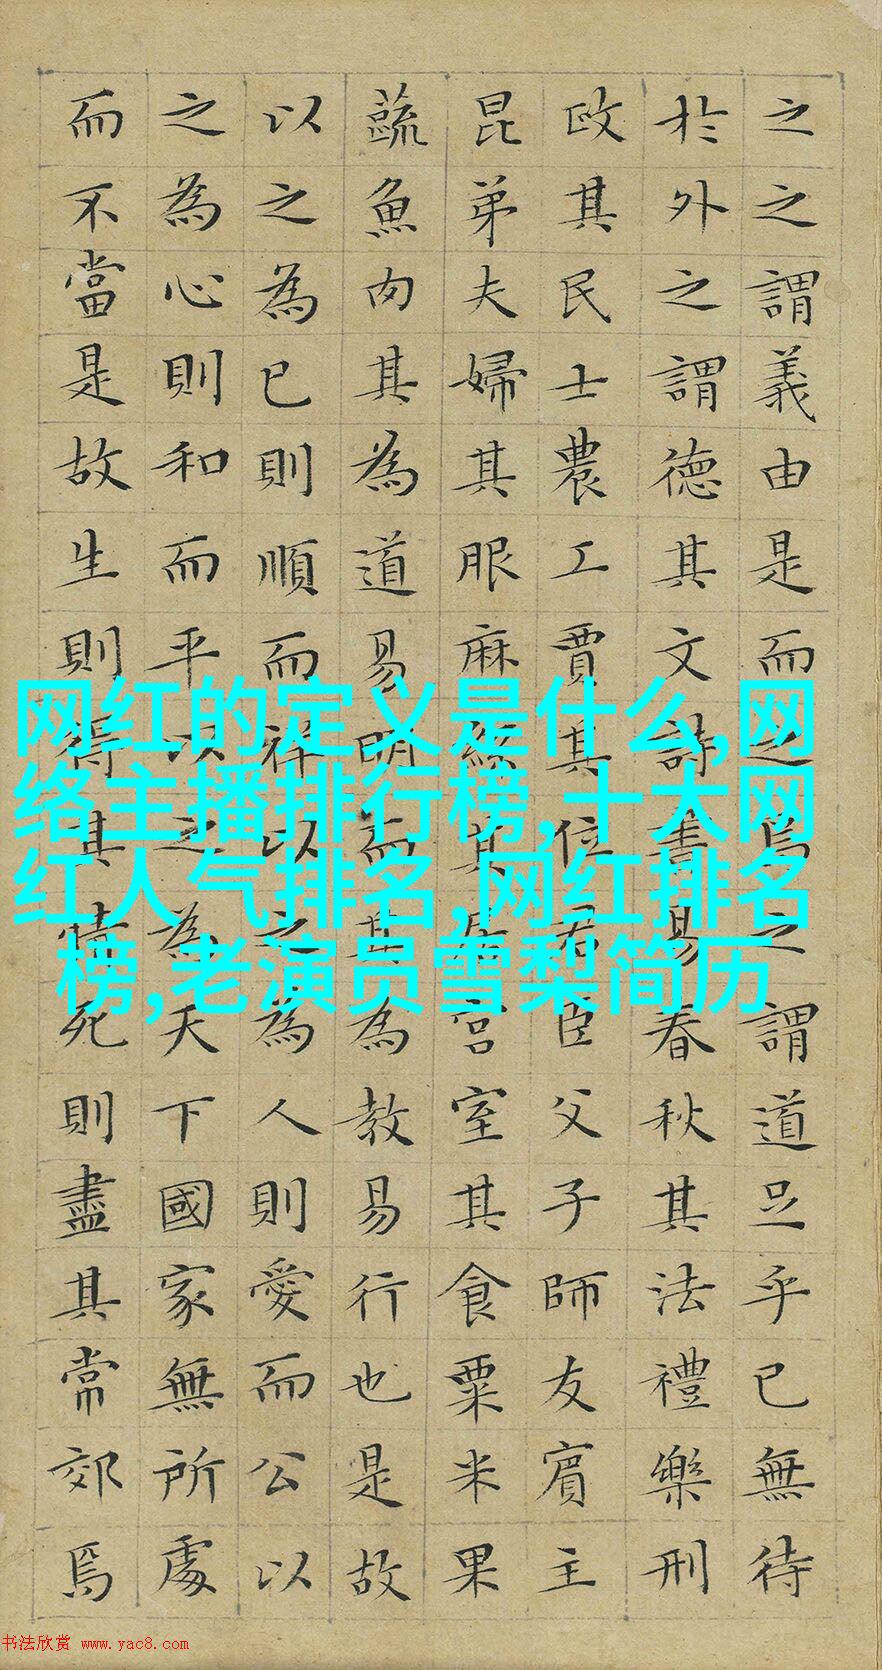 之之謂義由是而之焉之謂道足乎已無待
於外之謂德其文詩書易春秋其法禮樂刑
政其民士農工賈其位君臣父子師友賓主
昆弟夫婦其服麻絲其居宮室其食粟米果
蔬魚肉其為道易明而其為教易行也是故
以之為已則順而祥以之為人則愛而公以
之為心則和而平以之為天下國家無所處
而不當是故生則得其情死則盡其常郊焉
网红的定义是什么,网
络主播排行榜,十大网
红人气排名,网红排名
榜,老演员雪梨简历
书法欣赏 www.yac8.com